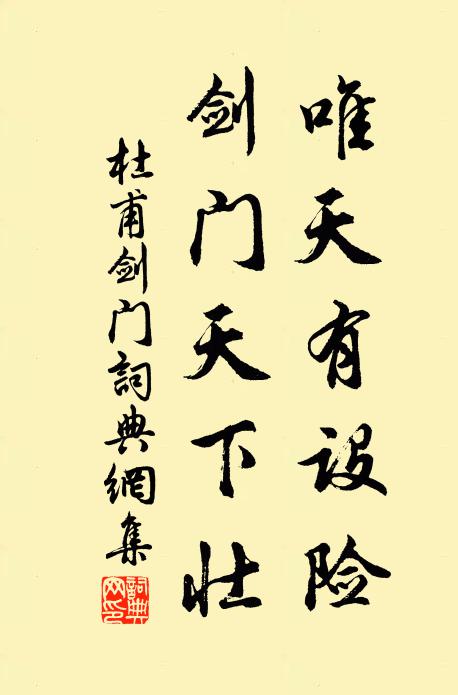 唯天有设险
剑门天下壮
杜甫剑门詞典網集
詞典網印